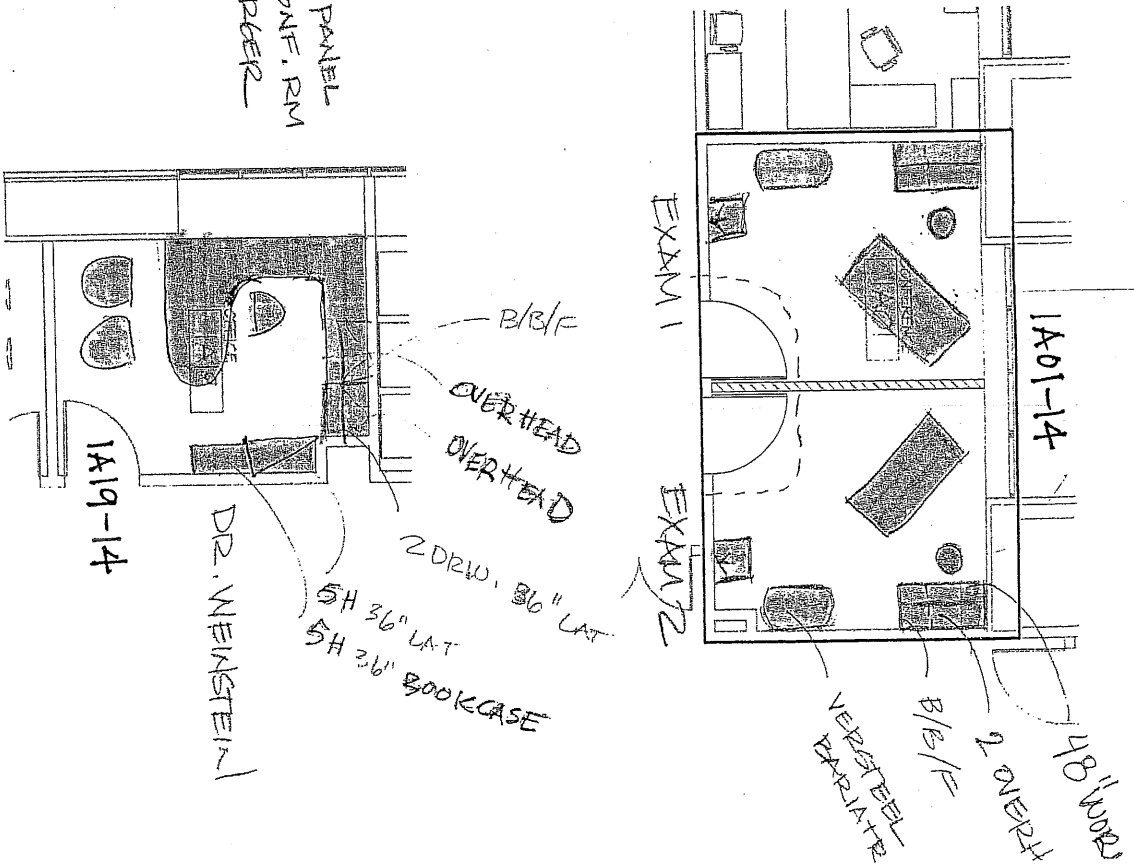 PANEL
ONF. RM
RGER
B/B/F
OVERHEAD
OVERHEAD
2 DRW. 36" LAT
5H 36" LAT
5H 36" BOOKCASE
1A19-14
DR. WEINSTEIN
EXAM 1
EXAM 2
1A01-14
48" WOR
2 OVERH
B/B/F
VERSTEEL
BARIATR